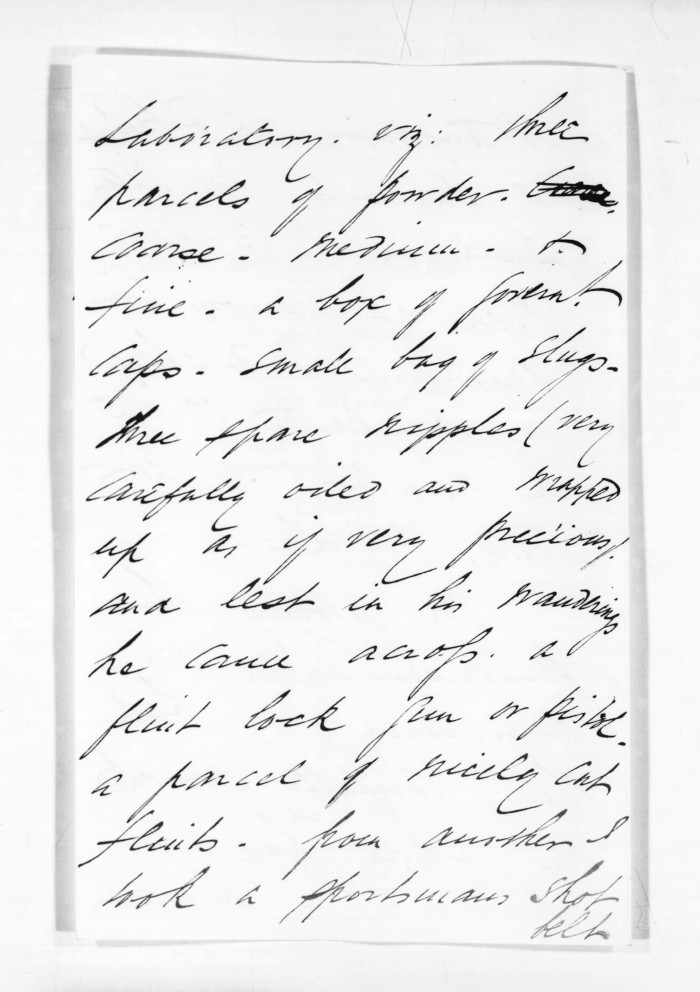 Laboratory. viz: three
parcels of powder.
coarse - medium - &
fine - a box of Governt
Caps - small bag of slugs -
three spare nipples (very
carefully oiled and wrapped
up as if very precious).
and lest in his wanderings
he came across. a
flint lock gun or pistol -
a parcel of nicely cut
flints - from another I
took a sportsmans shot
belt